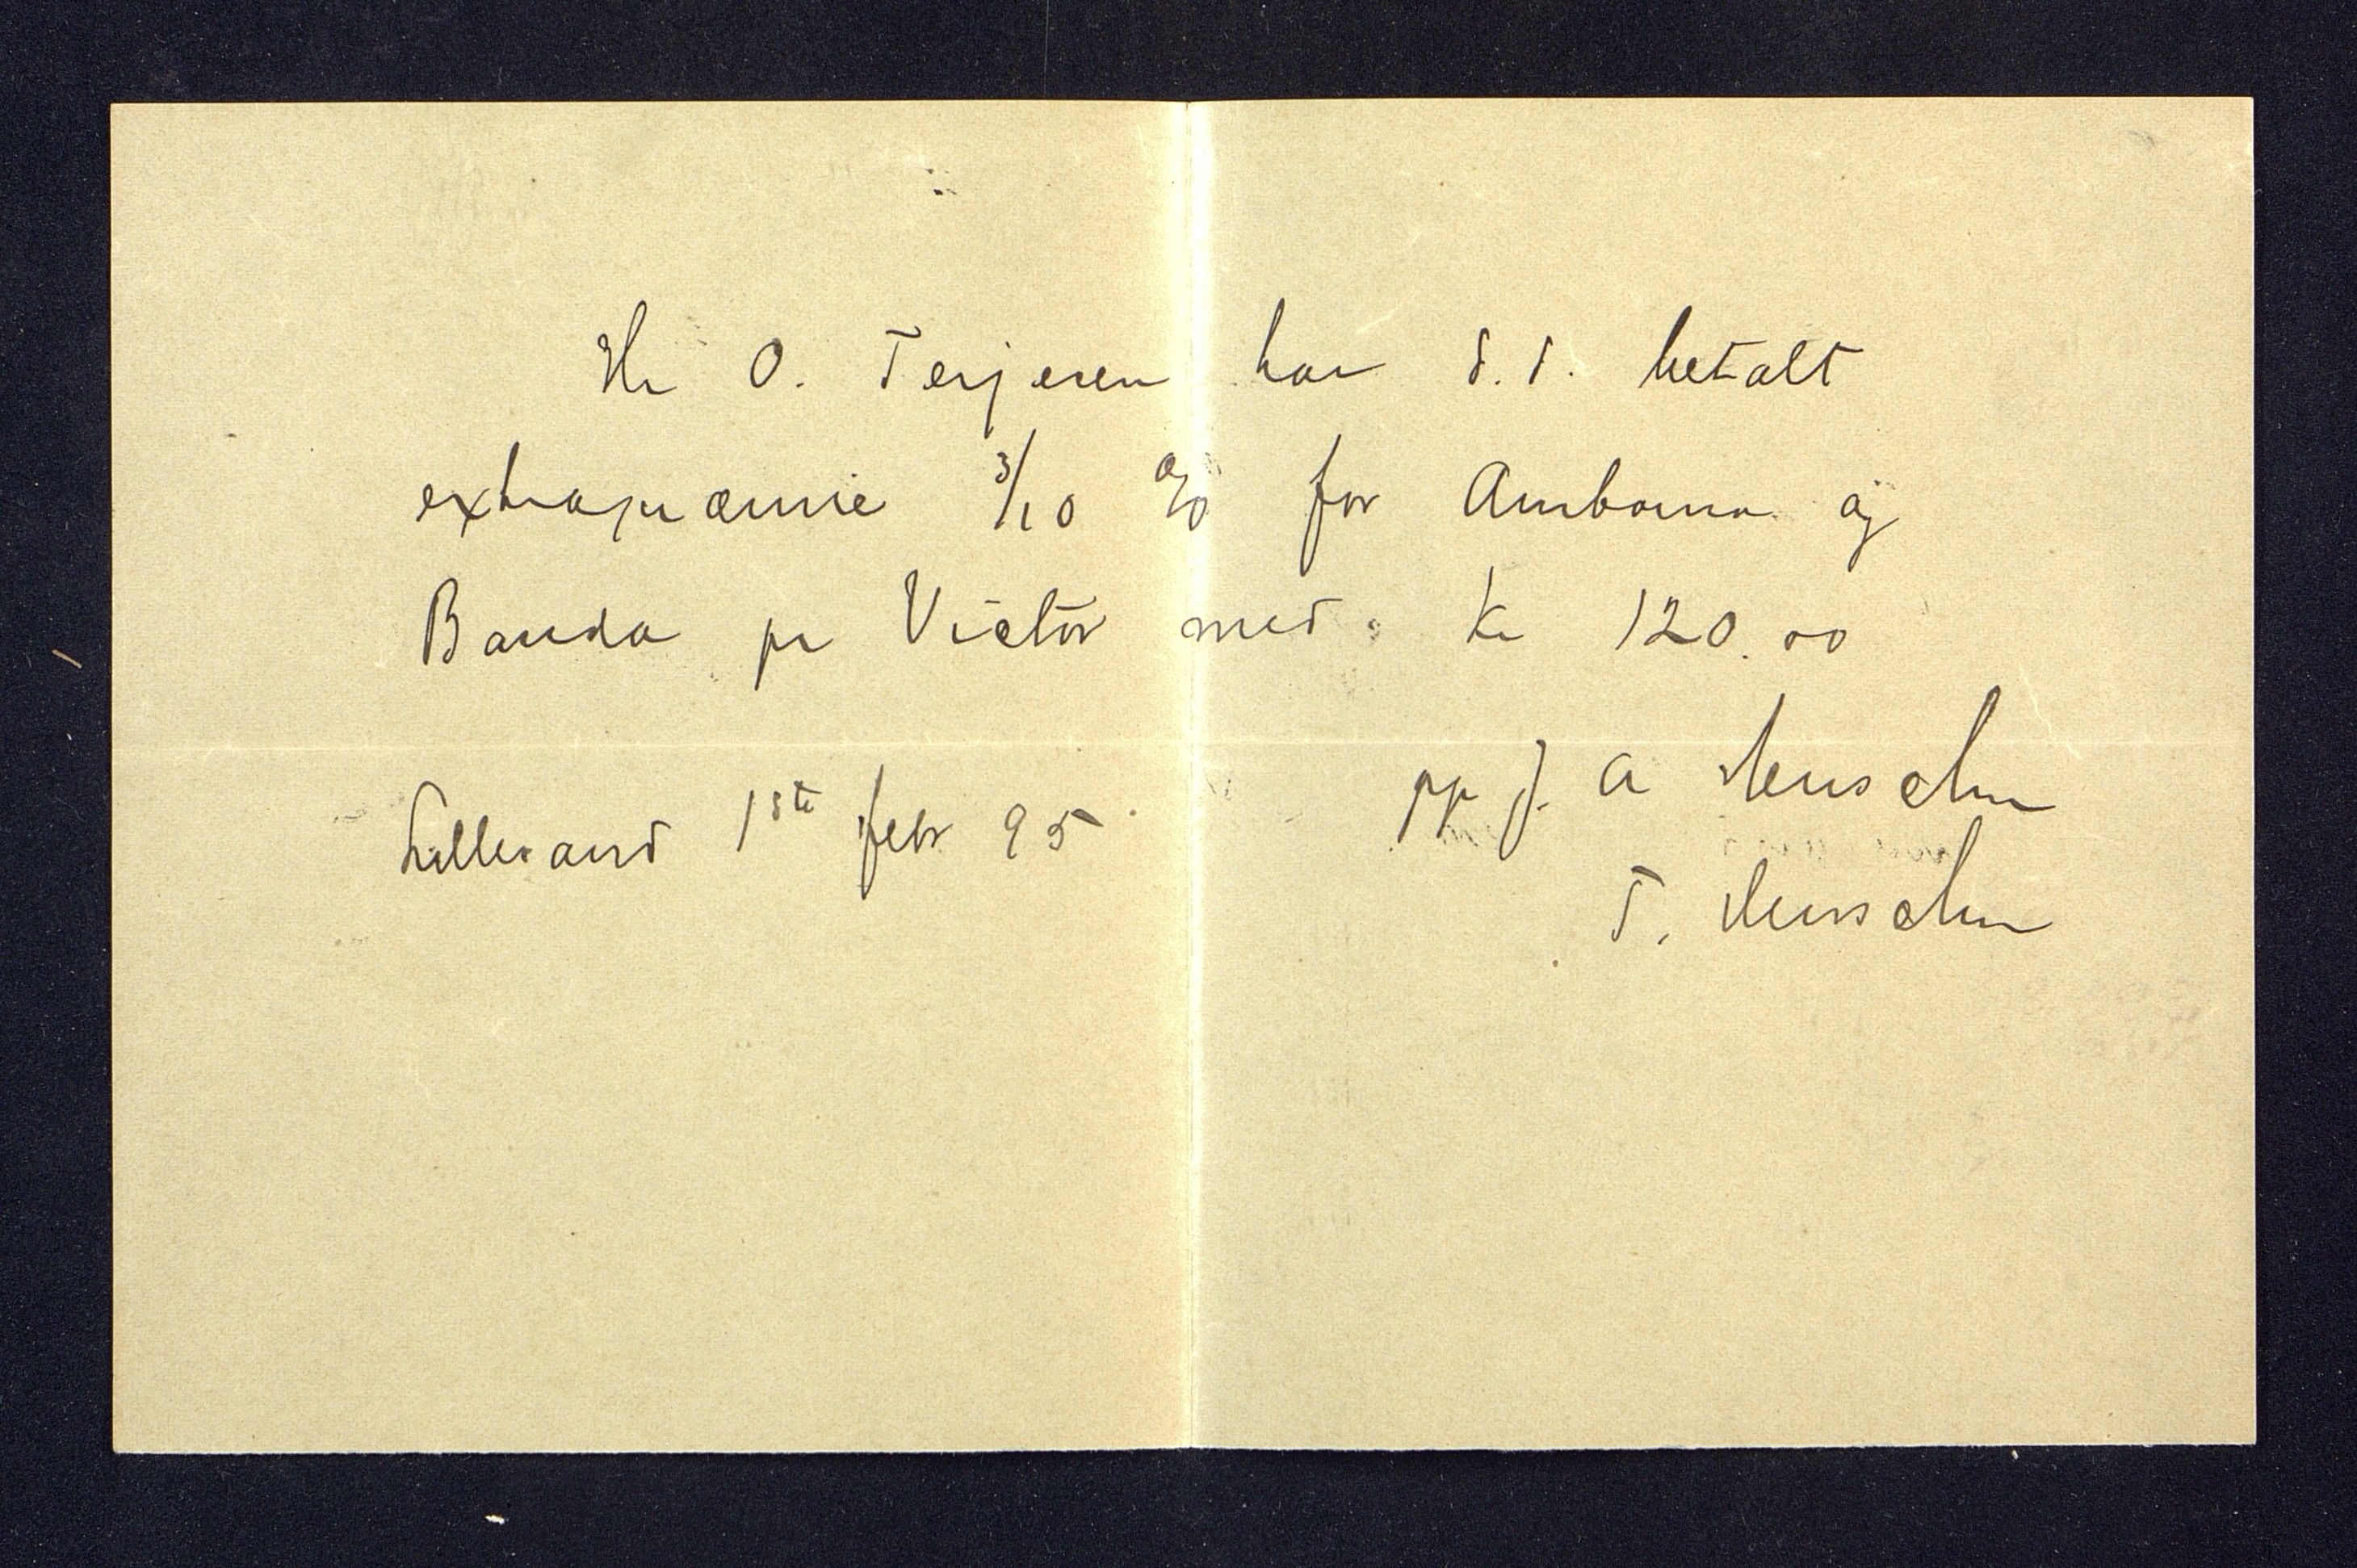 Hr O. Terjesen har d.d. betalt
extrapræmie 3/10 % for Amboina og
Banda pr Victor med Kr 120.00
Lillesand 1ste febr 95
pp J. A
T.